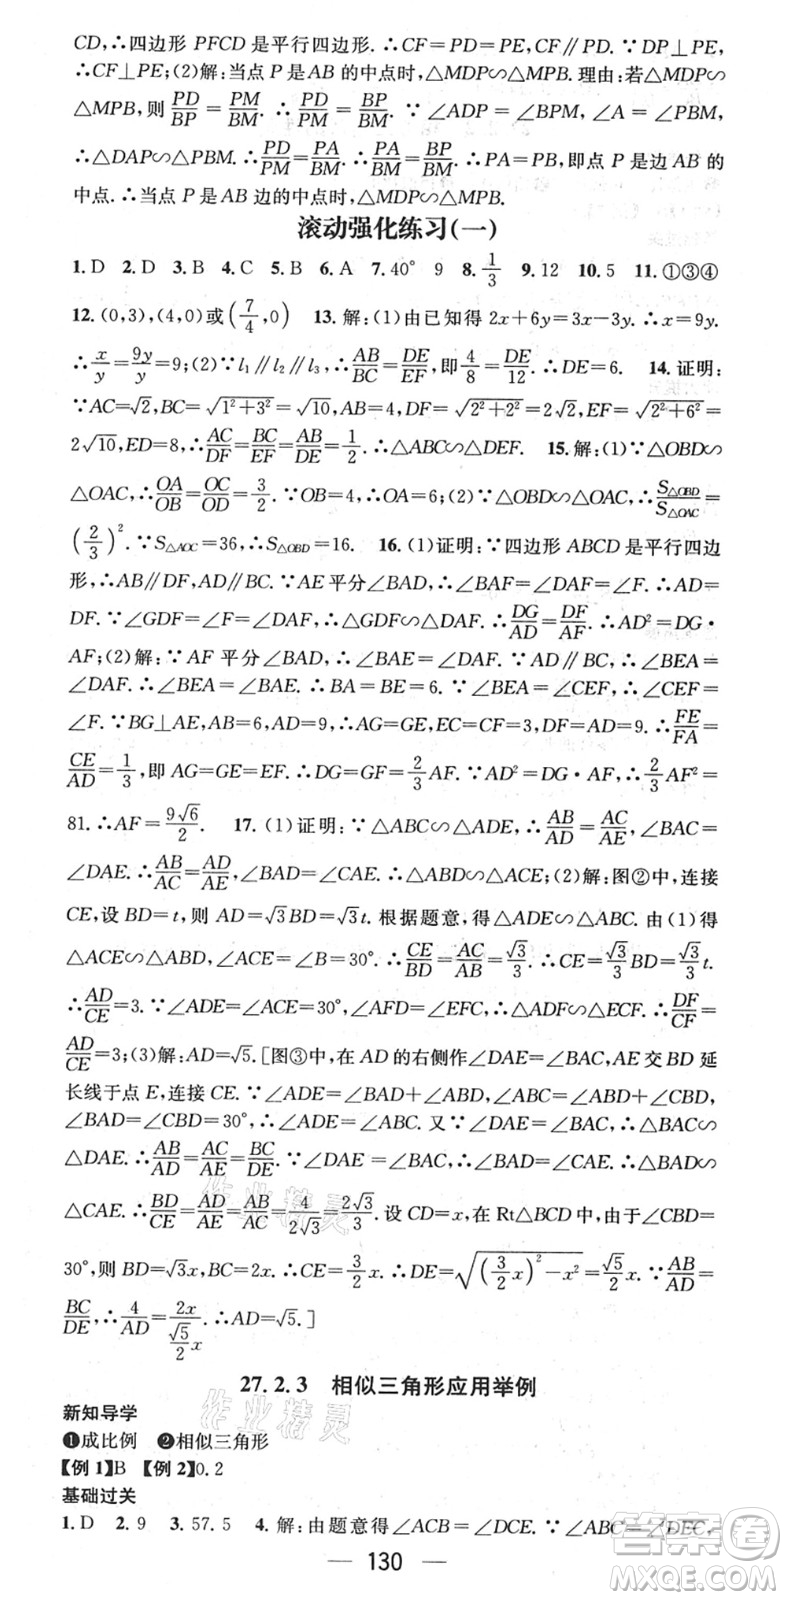 CD,∴四边形 PFCD 是平行四边形.∴CF=PD=PE,CF∥PD.∵DP⊥PE,
∴CF⊥PE;(2)解:当点 P 是AB 的中点时,△MDP∽△MPB.理由:若△MDP∽
△MPB,则 PD/BP=PM/BM.∴PD/PM=BP/BM.∵∠ADP=∠BPM,∠A=∠PBM,
∴△DAP∽△PBM.∴PD/PM=PA/BM.∴PA/BM=BP/BM.∴PA=PB,即点 P 是边 AB 的
中点.∴当点 P 是 AB 边的中点时,△MDP∽△MPB.
滚动强化练习(一)
1.D 2.D 3.B 4.C 5.B 6.A 7.40° 9 8.1/3 9.12 10.5 11.①③④
12.(0,3),(4,0)或(7/4,0) 13.解:(1)由已知得 2x+6y=3x-3y.∴x=9y.
∴x/y=9y/y=9;(2)∵l₁∥l₂∥l₃.∴AB/BC=DE/EF,即4/8=DE/12.∴DE=6. 14.证明:
∵AC=√2,BC=√(1²+3²)=√10,AB=4,DF=√(2²+2²)=2√2,EF=√(2²+6²)=
2√10,ED=8,∴AC/DF=BC/EF=AB/DE=1/2.∴△ABC∽△DEF. 15.解:(1)∵△OBD∽
△OAC,∴OA/OB=OC/OD=3/2.∵OB=4,∴OA=6;(2)∵△OBD∽△OAC,∴S△OBD/S△OAC=
(2/3)².∵S△AOC=36,∴S△OBD=16. 16.(1)证明:∵四边形 ABCD 是平行四边
形,∴AB∥DF,AD∥BC.∵AE 平分∠BAD,∴∠DAF=∠BAF=∠F.∴AD=
DF.∵∠GDF=∠F=∠DAF,∴△GDF∽△DAF.∴DG/AD=DF/AF.∴AD²=DG·
AF;(2)解:∵AF 平分∠BAD,∴∠BAE=∠DAF.∵AD∥BC,∴∠BEA=
∠DAF.∴∠BEA=∠BAE.∴BA=BE=6.∵∠BEA=∠CEF,∴∠CEF=
∠F.∵BG⊥AE,AB=6,AD=9,∴AG=GE,EC=CF=AD-AB=3.∴FE/FA=
CE/AD=1/3,即 AG=GE=EF.∴DG=GF=2/3AF.∵AD²=DG·AF=2/3AF²=
81.∴AF=9√6/2. 17.(1)证明:∵△ABC∽△ADE,∴AB/AD=AC/AE,∠BAC=
∠DAE.∴AB/AC=AD/AE,∠BAD=∠CAE.∴△ABD∽△ACE;(2)解:图②中,连接
CE,设 BD=t,则 AD=√3BD=√3t.根据题意,得△ADE∽△ABC.由(1)得
△ACE∽△ABD,∴∠ACE=∠B=30°.∴CE/BD=AC/AB=√3/3.∴CE=√3/3BD=√3/3t.
∴AD/CE=3.∵∠ADE=∠ACE=30°,∠AFD=∠EFC,∴△ADF∽△ECF.∴DF/CF=
AD/CE=3;(3)解:AD=√5.[图③中,在 AD 的右侧作∠DAE=∠BAC,AE 交 BD 延
长线于点 E,连接 CE.∵∠ADE=∠BAD+∠ABD,∠ABC=∠ABD+∠CBD,
∠BAD=∠CBD=30°,∴∠ADE=∠ABC.又∵∠DAE=∠BAC,∴△BAC∽
△DAE.∴AB/AD=AC/AE=BC/DE.∵∠DAE=∠BAC,∴∠BAD=∠CAE.∴△BAD∽
△CAE.∴BD/CE=AD/AE=AB/AC=4/2√3=2√3/3.设 CD=x,在Rt△BCD 中,由于∠CBD=
30°,则 BD=√3x,BC=2x.∴CE=3/2x.∴DE=√((3/2x)²-x²)=√5/2x.∵AB/AD=
BC/DE,∴4/AD=2x/(√5/2x).∴AD=√5.]
27.2.3 相似三角形应用举例
新知导学
❶成比例 ❷相似三角形
【例1】B 【例2】0.2
基础过关
1.D 2.9 3.57.5 4.解:由题意得∠ACB=∠DCE.∵∠ABC=∠DEC,
130
作业精灵
作业精灵
答案圈
MXQE.COM